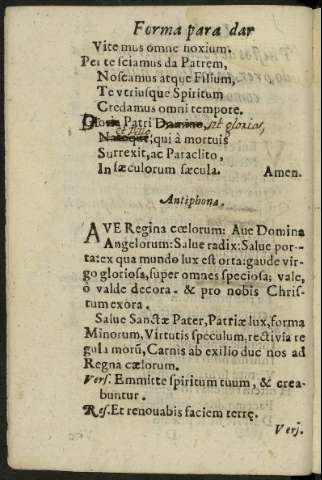 Forma para dar
Vite mus omne noxium.
Per te sciamus da Patrem,
Noscamus atque Filium,
Te vtriusque Spiritum
Credamus omni tempore.
Gloria Patri Domino, sit gloria,
et filio
Natoque, qui à mortuis
Surrexit, ac Paraclito,
In sæculorum sæcula. Amen.
Antiphona.
AVE Regina cœlorum: Aue Domina
Angelorum: Salue radix: Salue por-
ta: ex qua mundo lux est orta: gaude vir-
go gloriosa, super omnes speciosa; vale,
ò valde decora. & pro nobis Chris-
tum exora.
Salue Sanctæ Pater, Patriæ lux, forma
Minorum, Virtutis speculum, recti via re
gula morũ, Carnis ab exilio duc nos ad
Regna cælorum.
Vers. Emmitte spiritum tuum, & crea-
buntur.
Res. Et renouabis faciem terrę.
Verſ.